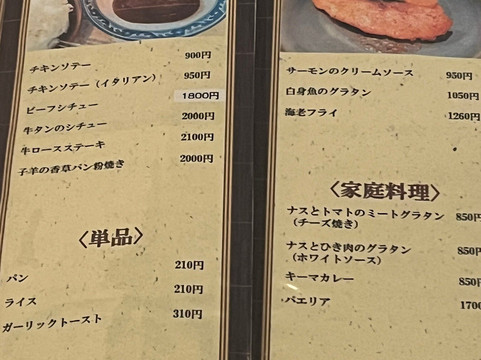 チキンソテー 900円
チキンソテー（イタリアン） 950円
ビーフシチュー 1800円
牛タンのシチュー 2000円
牛ロースステーキ 2100円
子羊の香草パン粉焼き 2000円
〈単品〉
パン 210円
ライス 210円
ガーリックトースト 310円
サーモンのクリームソース 950円
白身魚のグラタン 1050円
海老フライ 1260円
〈家庭料理〉
ナスとトマトのミートグラタン 850円
（チーズ焼き）
ナスとひき肉のグラタン 850円
（ホワイトソース）
キーマカレー 850円
パエリア 1700